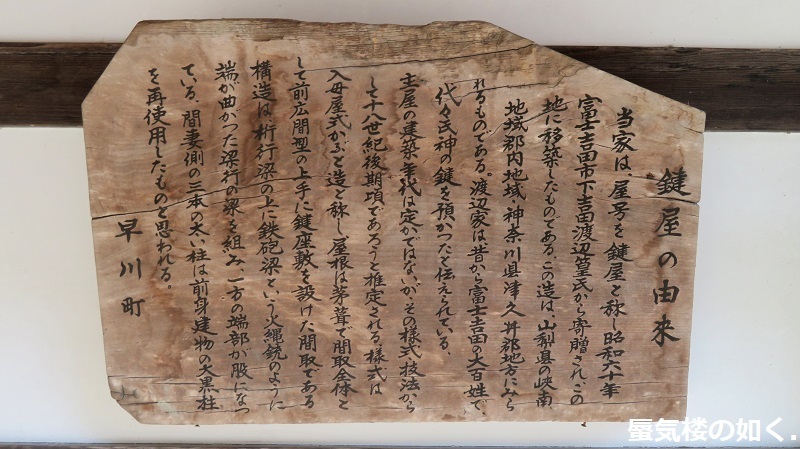 鍵屋の由来
当家は、屋号を鍵屋と称し昭和六十年
富士吉田市下吉田渡辺篁氏から寄贈され、この
地に移築したものである。この造は、山梨県の峡南
地域郡内地域・神奈川県津久井郡地方にみら
れるものである。渡辺家は昔から富士吉田の大百姓で
代々氏神の鍵を預かつたと伝えられている。
主屋の建築年代は定かではないが、その様式技法から
して十八世紀後期頃であろうと推定される。様式は
入母屋式かぶと造と称し屋根は茅葺で間取全体と
して前広間型の上手に鍵座敷を設けた間取である
構造は、桁行梁の上に鉄砲梁という火縄銃のように
端が曲がつた梁行の梁を組み、一方の端部が股になつ
ている。間妻側の三本の太い柱は前身建物の大黒柱
を再使用したものと思われる。
早川町
蜃気楼の如く.